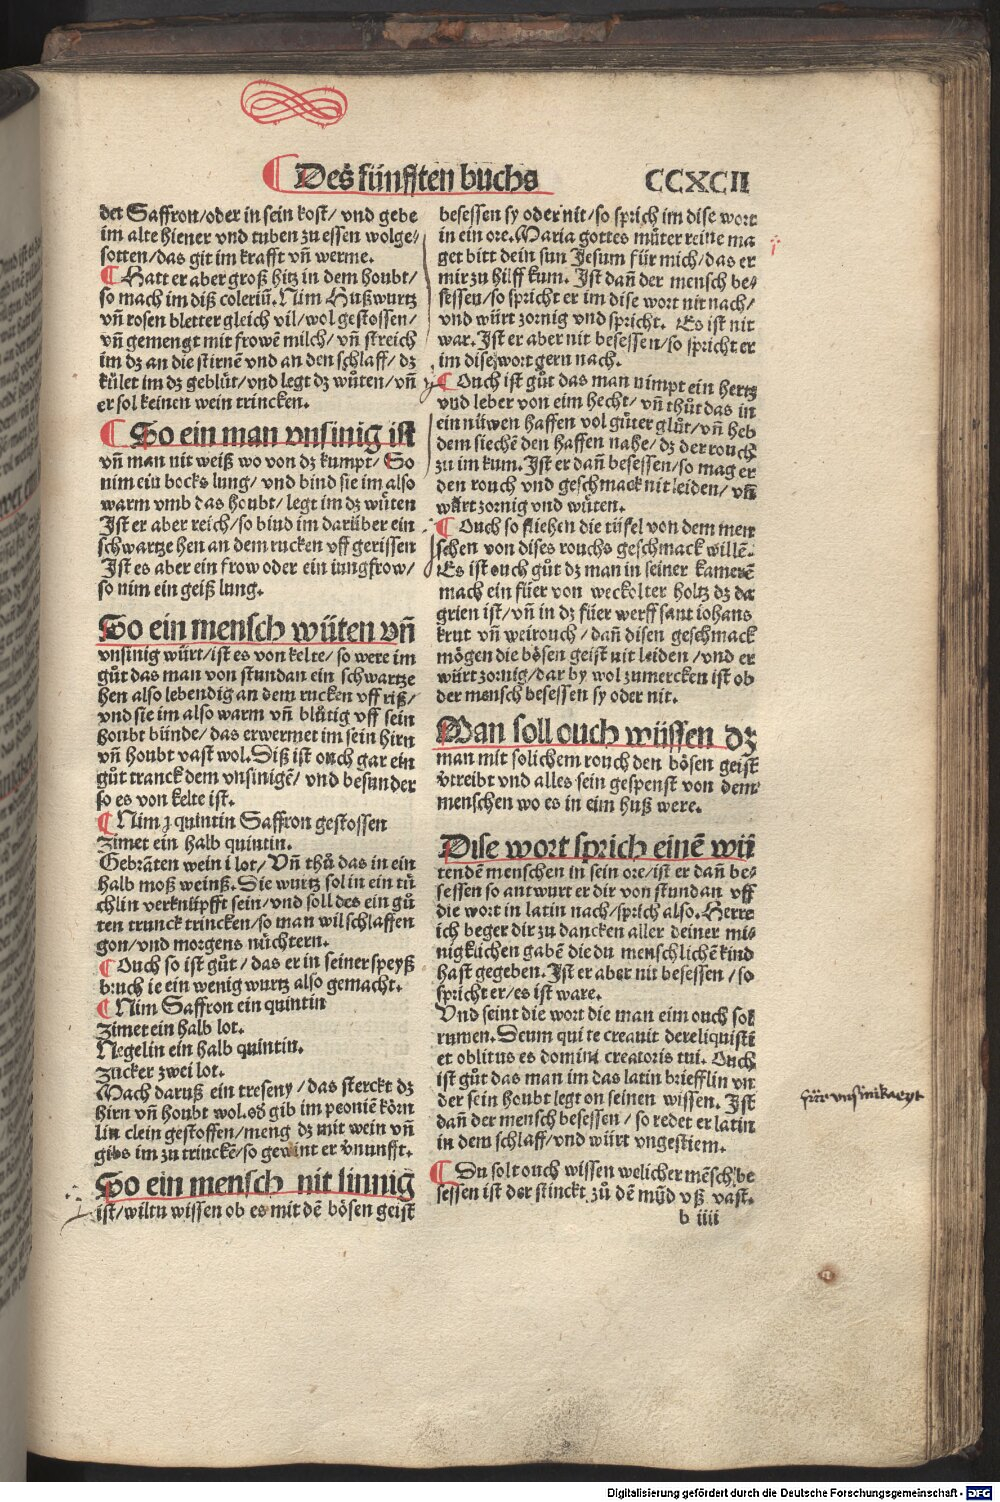 Des fünfften buchs CCXCII
der Saffron/oder in sein kost/ vnd gebe
im alte hiener vnd tuben zu essen wolge⸗
sotten/das git im krafft vn̄ werme.
¶ Hatt er aber groß hitz in dem houbt/
so mach im diß coleriū. Nim Hußwurtz
vn̄ rosen bletter gleich vil/wol gestossen/
vn̄ gemengt mit frowē milch/ vn̄ streich
im dz an die stirnē vnd an den schlaff/ dz
kület im dz geblůt/vnd legt dz wůten/vn̄
er sol keinen wein trincken.
¶ So ein man vnsinig ist
vn̄ man nit weiß wo von dz kumpt/ So
nim ein bocks lung/ vnd bind sie im also
warm vmb das houbt/ legt im dz wůten
Ist er aber reich/so bind im darüber ein
schwartze hen an dem rucken vff gerissen
Ist es aber ein frow oder ein iungfrow/
so nim ein geiß lung.
So ein mensch wüten vn̄
vnsinig würt/ist es von kelte/ so were im
gůt das man von stundan ein schwartze
hen also lebendig an dem rucken vff riß/
vnd sie im also warm vn̄ blůtig vff sein
houbt bünde/ das erwermet im sein hirn
vn̄ houbt vast wol. Diß ist ouch gar ein
gůt tranck dem vnsinigē/ vnd besunder
so es von kelte ist.
¶ Nim ʒ quintin Saffron gestossen
Zimet ein halb quintin.
Gebrāten wein i lot/ Vn̄ thů das in ein
halb moß weinß. Die wurtz sol in ein tü
chlin verknüpfft sein/vnd soll des ein gů
ten trunck trincken/so man wil schlaffen
gon/vnd morgens nüchtern.
¶ Ouch so ist gůt/ das er in seiner speyß
bruch ie ein wenig wurtz also gemacht.
¶ Nim Saffron ein quintin
Zimet ein halb lot.
Negelin ein halb quintin.
Zucker zwei lot.
Mach daruß ein treseny/das sterckt dz
hirn vn̄ houbt wol. oď gib im peoniē körn
lin clein gestossen/meng dz mit wein vn̄
gibs im zu trinckē/so gewint er v̉nunfft.
So ein mensch nit sinnig
ist/wiltu wissen ob es mit dē bösen geist
besessen sy oder nit/so sprich im dise wort
in ein ore. Maria gottes můter reine ma
get bitt dein sun Jesum für mich/das er
mir zu hilff kum. Ist dan̄ der mensch be⸗
sessen/so spricht er im dise wort nit nach/
vnd würt zornig vnd spricht. Es ist nit
war. Ist er aber nit besessen/so spricht er
im dise wort gern nach.
¶ Ouch ist gůt das man nimpt ein hertz
vnd leber von eim hecht/ vn̄ thůt das in
ein nüwen haffen vol gůter glůt/vn̄ heb
dem siechē den haffen nahe/ dz der rouch
zu im kum. Ist er dan̄ besessen/so mag er
den rouch vnd geschmack nit leiden/ vn̄
würt zornig vnd wůten.
¶ Ouch so fliehen die tüfel von dem men
schen von dises rouchs geschmack willē.
Es ist ouch gůt dz man in seiner kamerē
mach ein füer von weckolter holtz dz da
grien ist/vn̄ in dz füer werff sant iohans
krut vn̄ weirouch/ dan̄ disen geschmack
mögen die bösen geist nit leiden /vnd er
würt zornig/dar by wol zumercken ist ob
der mensch besessen sy oder nit.
Man soll ouch wüssen dz
man mit solichem rouch den bösen geist
v̉treibt vnd alles sein gespenst von dem
menschen wo es in eim huß were.
Dise wort sprich einē wü
tendē menschen in sein ore/ist er dan̄ be⸗
sessen so antwurt er dir von stundan vff
die wort in latin nach/sprich also. Herre
ich beger dir zu dancken aller deiner mi⸗
nigklichen gabē die du menschlichē kind
hast gegeben. Ist er aber nit besessen /so
spricht er/es ist ware.
Vnd seint die wort die man eim ouch sol
rumen. Deum qui te creauit dereliquisti
et oblitus es domini creatoris tui. Ouch
ist gůt das man im das latin briefflin vn
der sein houbt legt on seinen wissen. Ist
dan̄ der mensch besessen /so redet er latin
in dem schlaff/vnd würt vngestiem.
¶ Du solt ouch wissen welicher mēsch be
sessen ist der stinckt zů dē mūd vß vast.
b iiii
für vnsinikaeyt
Digitalisierung gefördert durch die Deutsche Forschungsgemeinschaft - DFG